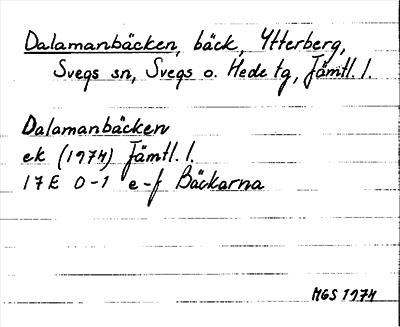 Dalamanbäcken, bäck, Ytterberg,
Svegs sn, Svegs o. Hede tg, Jämtl. l.
Dalamanbäcken
ek (1974) Jämtl. l.
17E 0-1 e-f Bäckarna
MGS 1974